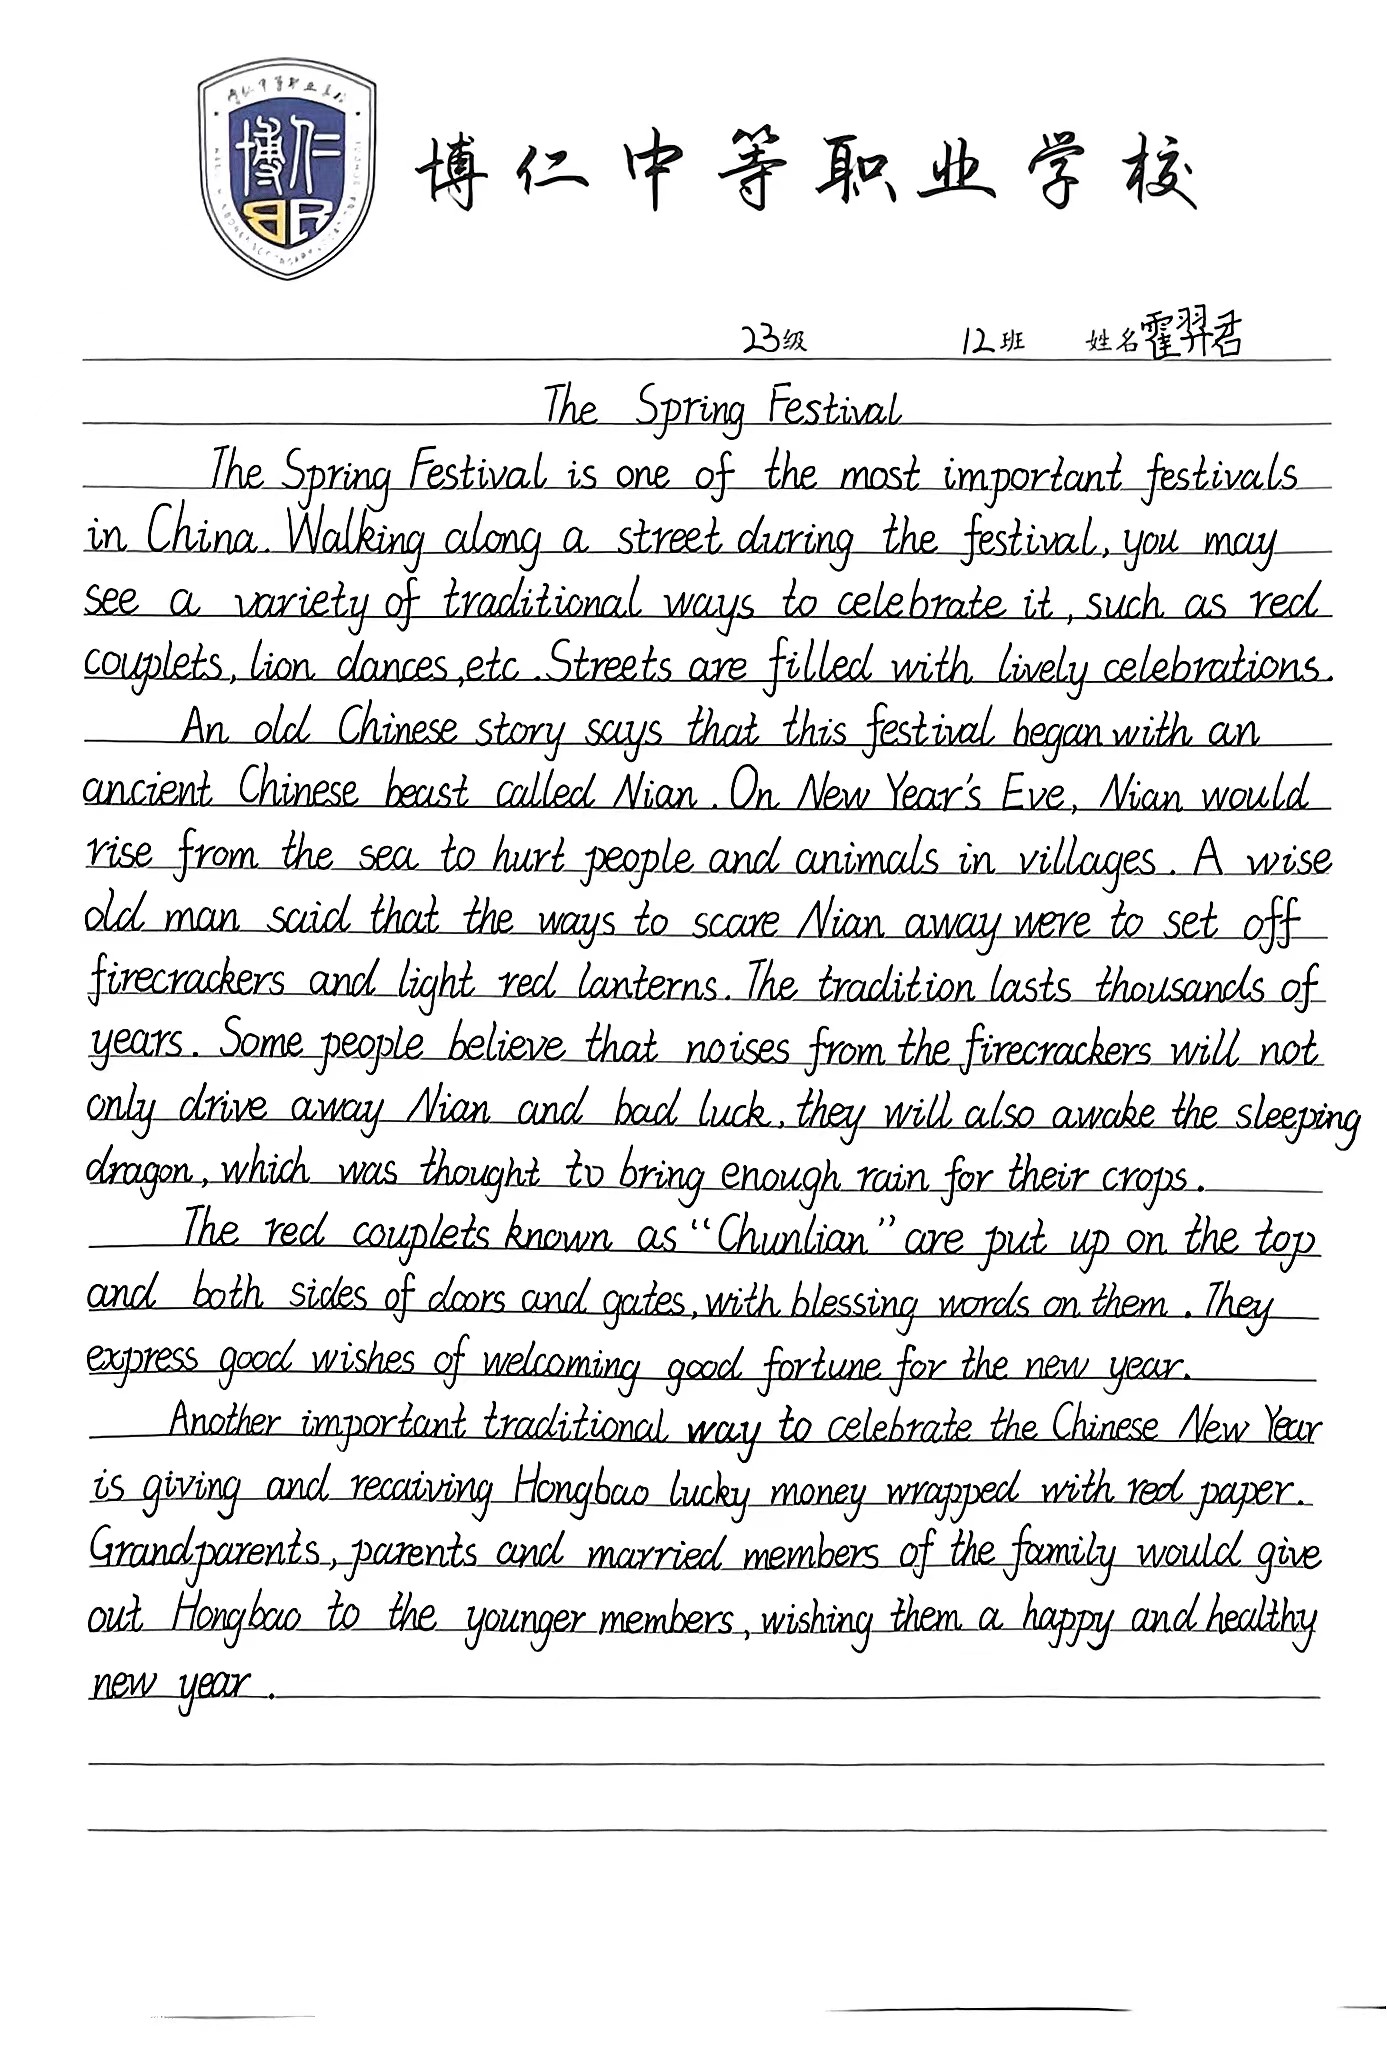 博仁
BR
博仁中等职业学校
23级 12班 姓名霍羿君
The Spring Festival
The Spring Festival is one of the most important festivals
in China. Walking along a street during the festival, you may
see a variety of traditional ways to celebrate it, such as red
couplets, lion dances, etc. Streets are filled with lively celebrations.
An old Chinese story says that this festival began with an
ancient Chinese beast called Nian. On New Year's Eve, Nian would
rise from the sea to hurt people and animals in villages. A wise
old man said that the ways to scare Nian away were to set off
firecrackers and light red lanterns. The tradition lasts thousands of
years. Some people believe that noises from the firecrackers will not
only drive away Nian and bad luck, they will also awake the sleeping
dragon, which was thought to bring enough rain for their crops.
The red couplets known as “Chunlian” are put up on the top
and both sides of doors and gates, with blessing words on them. They
express good wishes of welcoming good fortune for the new year.
Another important traditional way to celebrate the Chinese New Year
is giving and recaiving Hongbao lucky money wrapped with red paper.
Grandparents, parents and married members of the family would give
out Hongbao to the younger members, wishing them a happy and healthy
new year.